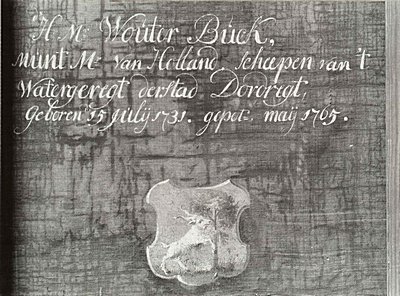 'H Mr Wouter Buck,
munt Mr van Holland, scheepen van 't
Watergeregt der stad Dordregt,
Geboren 15 july 1731. gepot. maij 1765.